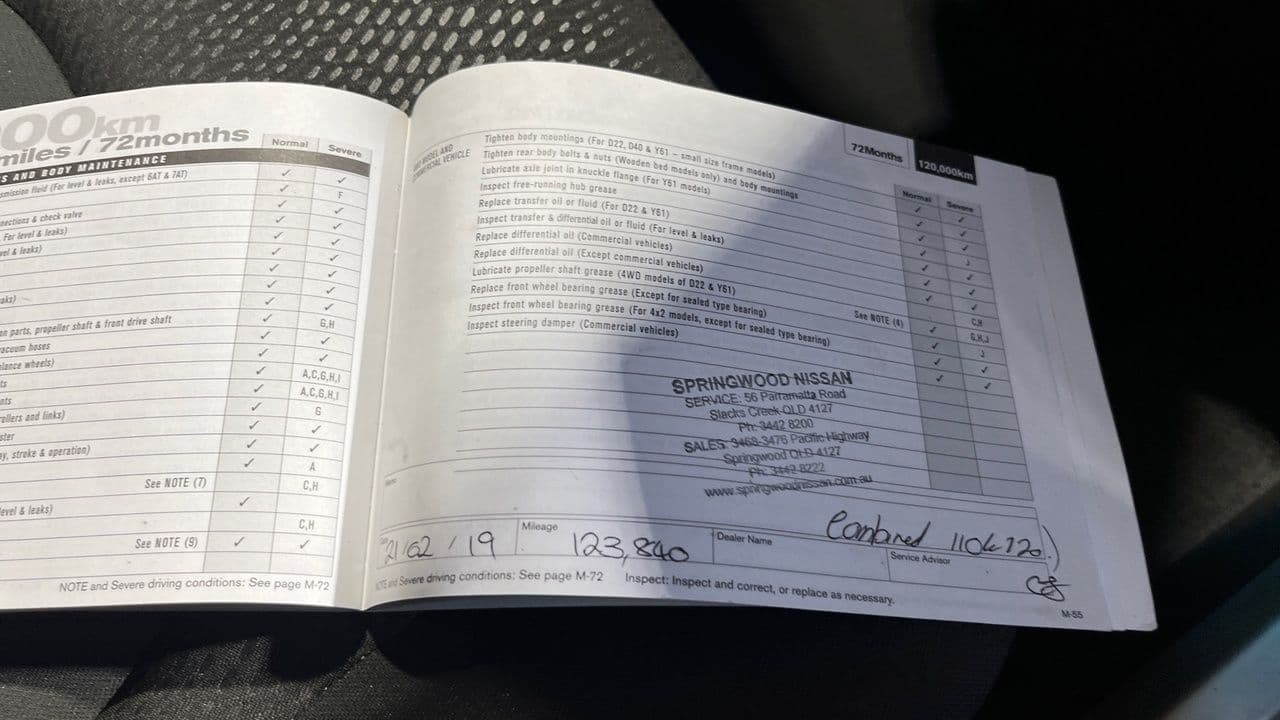 00km
miles / 72months
Normal
Severe
S AND BODY MAINTENANCE
smission fluid (For level & leaks, except 6AT & 7AT)
✓ ✓
✓ F
nections & check valve
✓ ✓
For level & leaks)
✓ ✓
vel & leaks)
✓ ✓
✓ ✓
✓ ✓
aks)
✓ ✓
on parts, propeller shaft & front drive shaft
✓ G,H
acuum hoses
✓ ✓
lance wheels)
✓ ✓
ts
✓ A,C,G,H,I
nts
✓ A,C,G,H,I
rollers and links)
✓ G
ster
✓ ✓
ay, stroke & operation)
✓ ✓
✓ A
See NOTE (7)
C,H
level & leaks)
✓
C,H
See NOTE (9)
✓ ✓
NOTE and Severe driving conditions: See page M-72
72Months
120,000km
Normal
Severe
MODEL AND
COMMERCIAL VEHICLE
Tighten body mountings (For D22, D40 & Y61 - small size frame models)
Tighten rear body bolts & nuts (Wooden bed models only) and body mountings
Lubricate axle joint in knuckle flange (For Y61 models)
Inspect free-running hub grease
Replace transfer oil or fluid (For D22 & Y61)
Inspect transfer & differential oil or fluid (For level & leaks)
Replace differential oil (Commercial vehicles)
Replace differential oil (Except commercial vehicles)
Lubricate propeller shaft grease (4WD models of D22 & Y61)
Replace front wheel bearing grease (Except for sealed type bearing)
See NOTE (4)
Inspect front wheel bearing grease (For 4x2 models, except for sealed type bearing)
Inspect steering damper (Commercial vehicles)
C,H
G,H,J
J
SPRINGWOOD NISSAN
SERVICE: 56 Parramatta Road
Slacks Creek QLD 4127
Ph: 3442 8200
SALES: 3468-3476 Pacific Highway
Springwood QLD 4127
Ph: 3442 8222
www.springwoodnissan.com.au
Memo
21/02/19
Mileage
123,840
Dealer Name
Combined 110k 120.)
Service Advisor
NOTE and Severe driving conditions: See page M-72
Inspect: Inspect and correct, or replace as necessary.
M-55